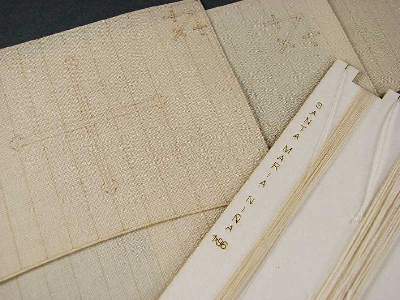 SANTA MARIA NINA